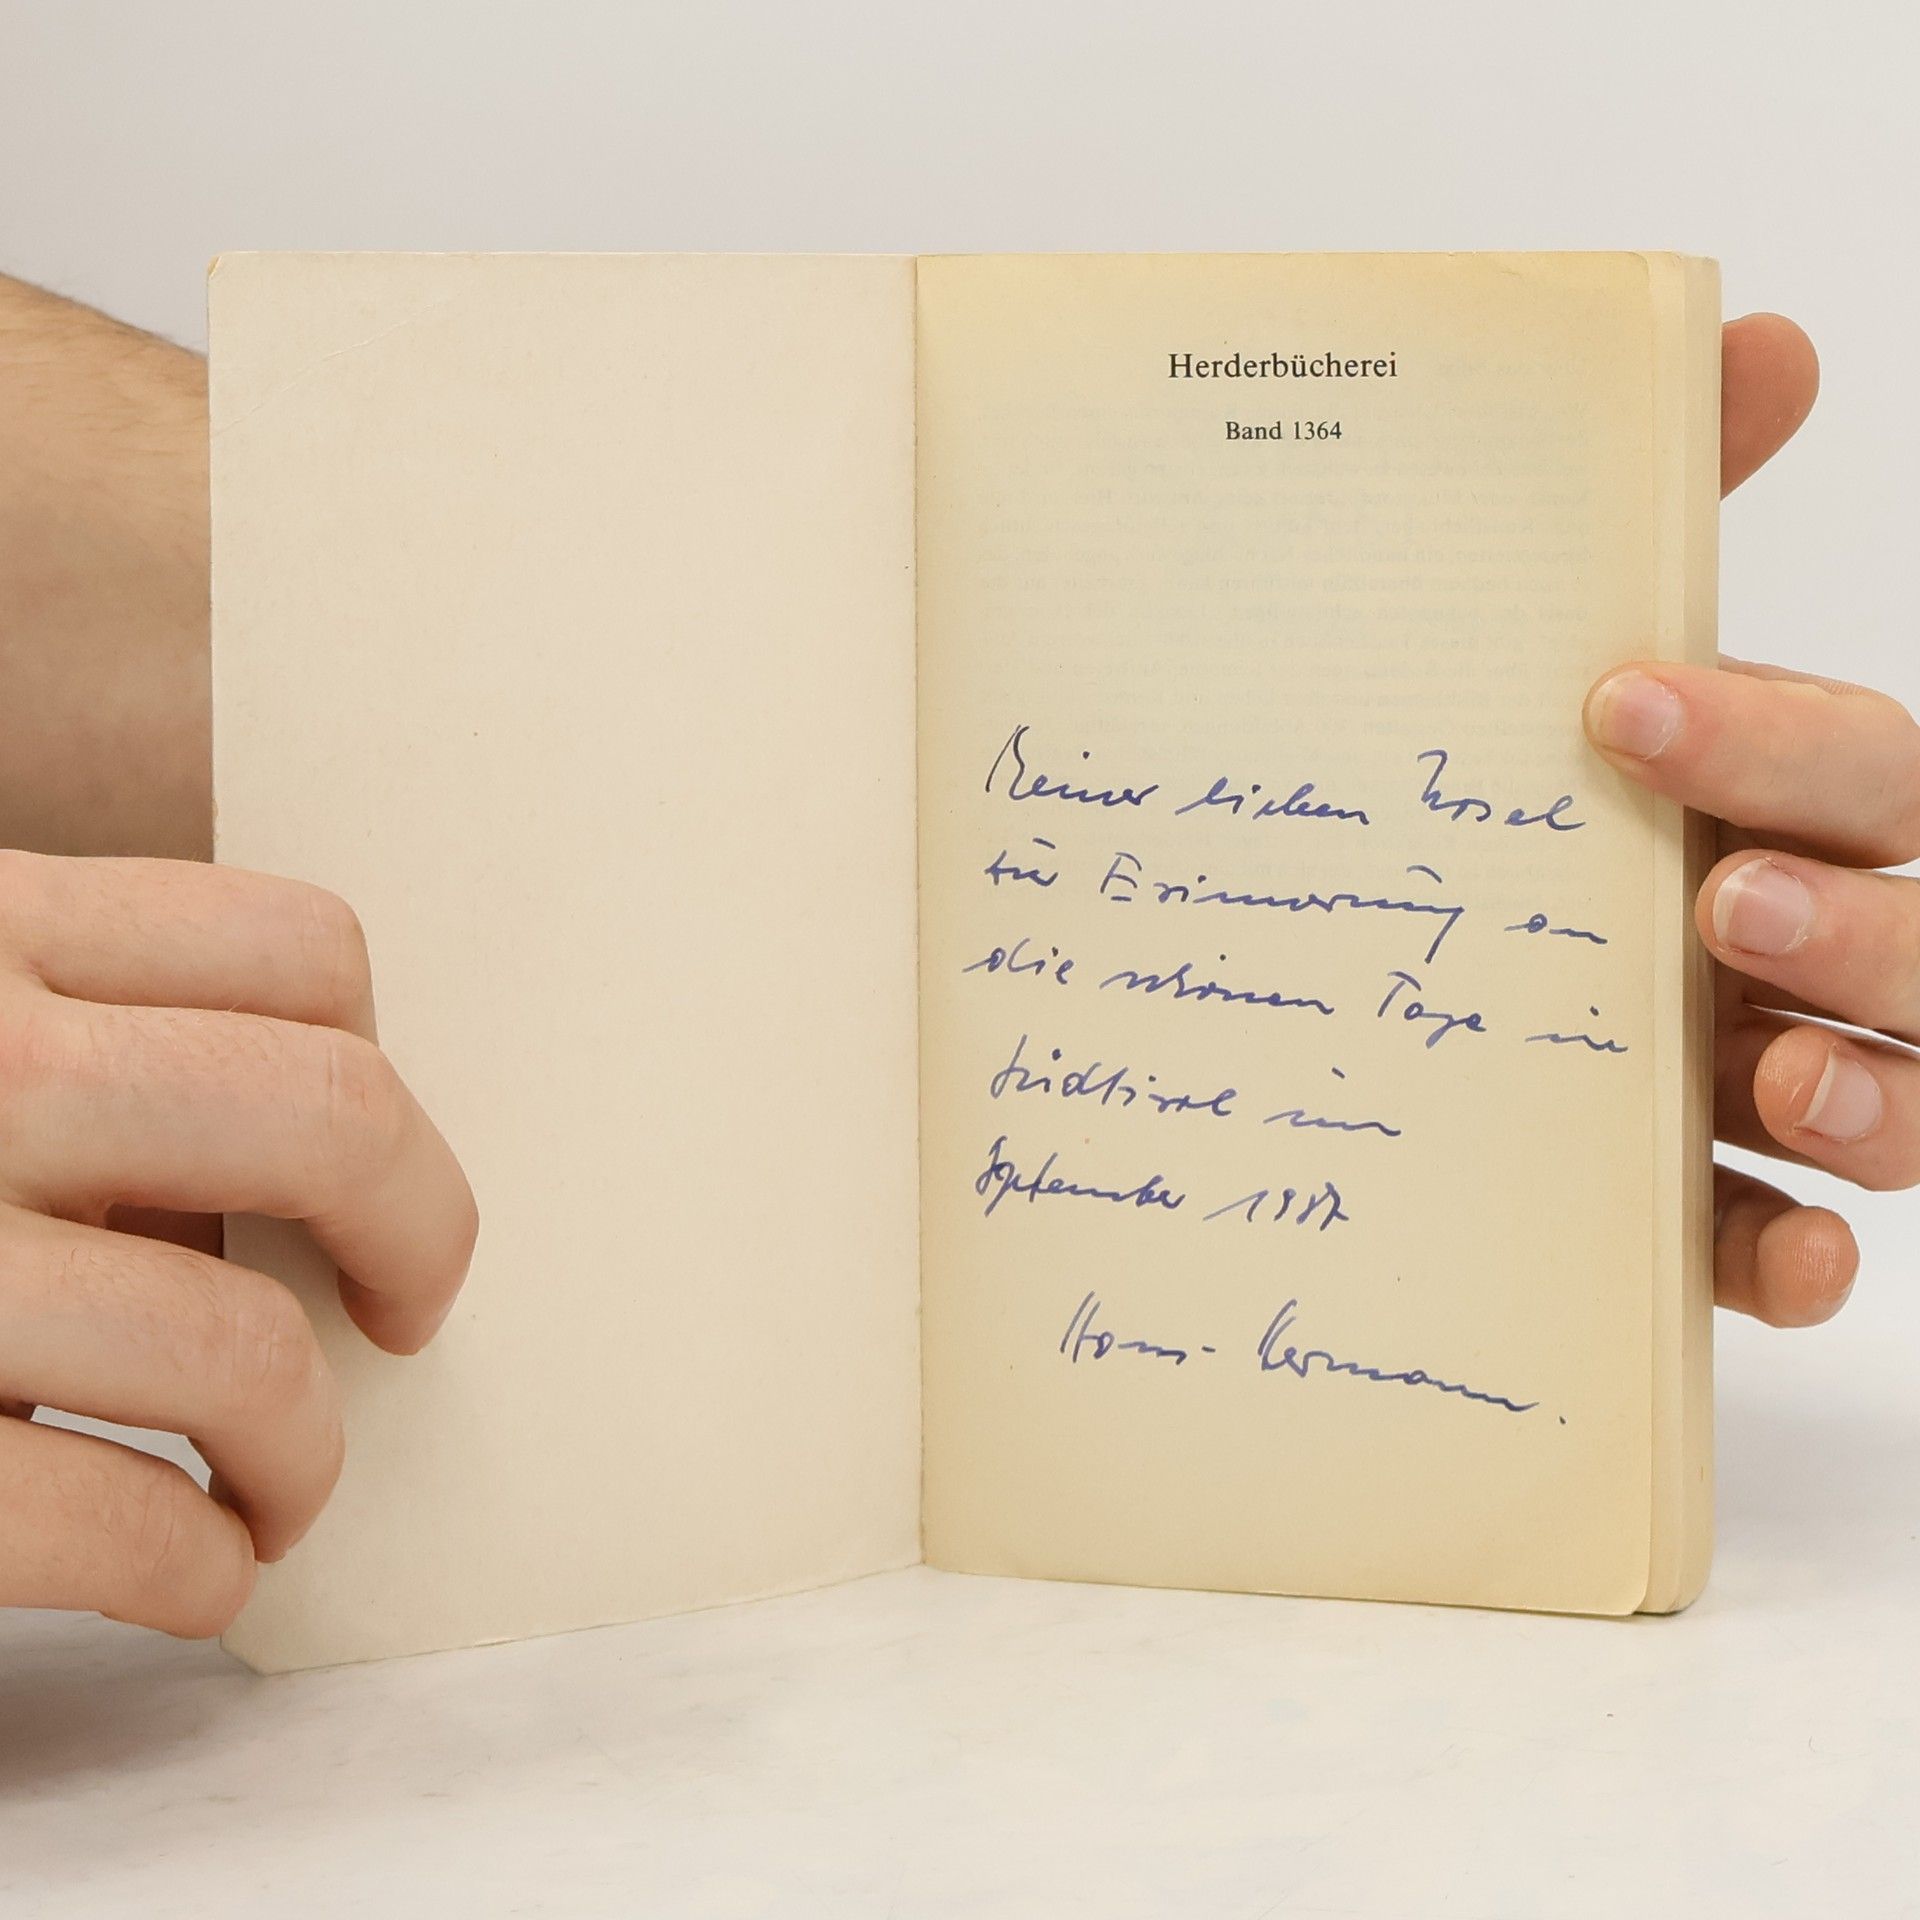 Herderbücherei
Band 1364
Meiner lieben
zur Erinnerung an
die schönen Tage in
Südtirol im
September 1987
Hans-Hermann.